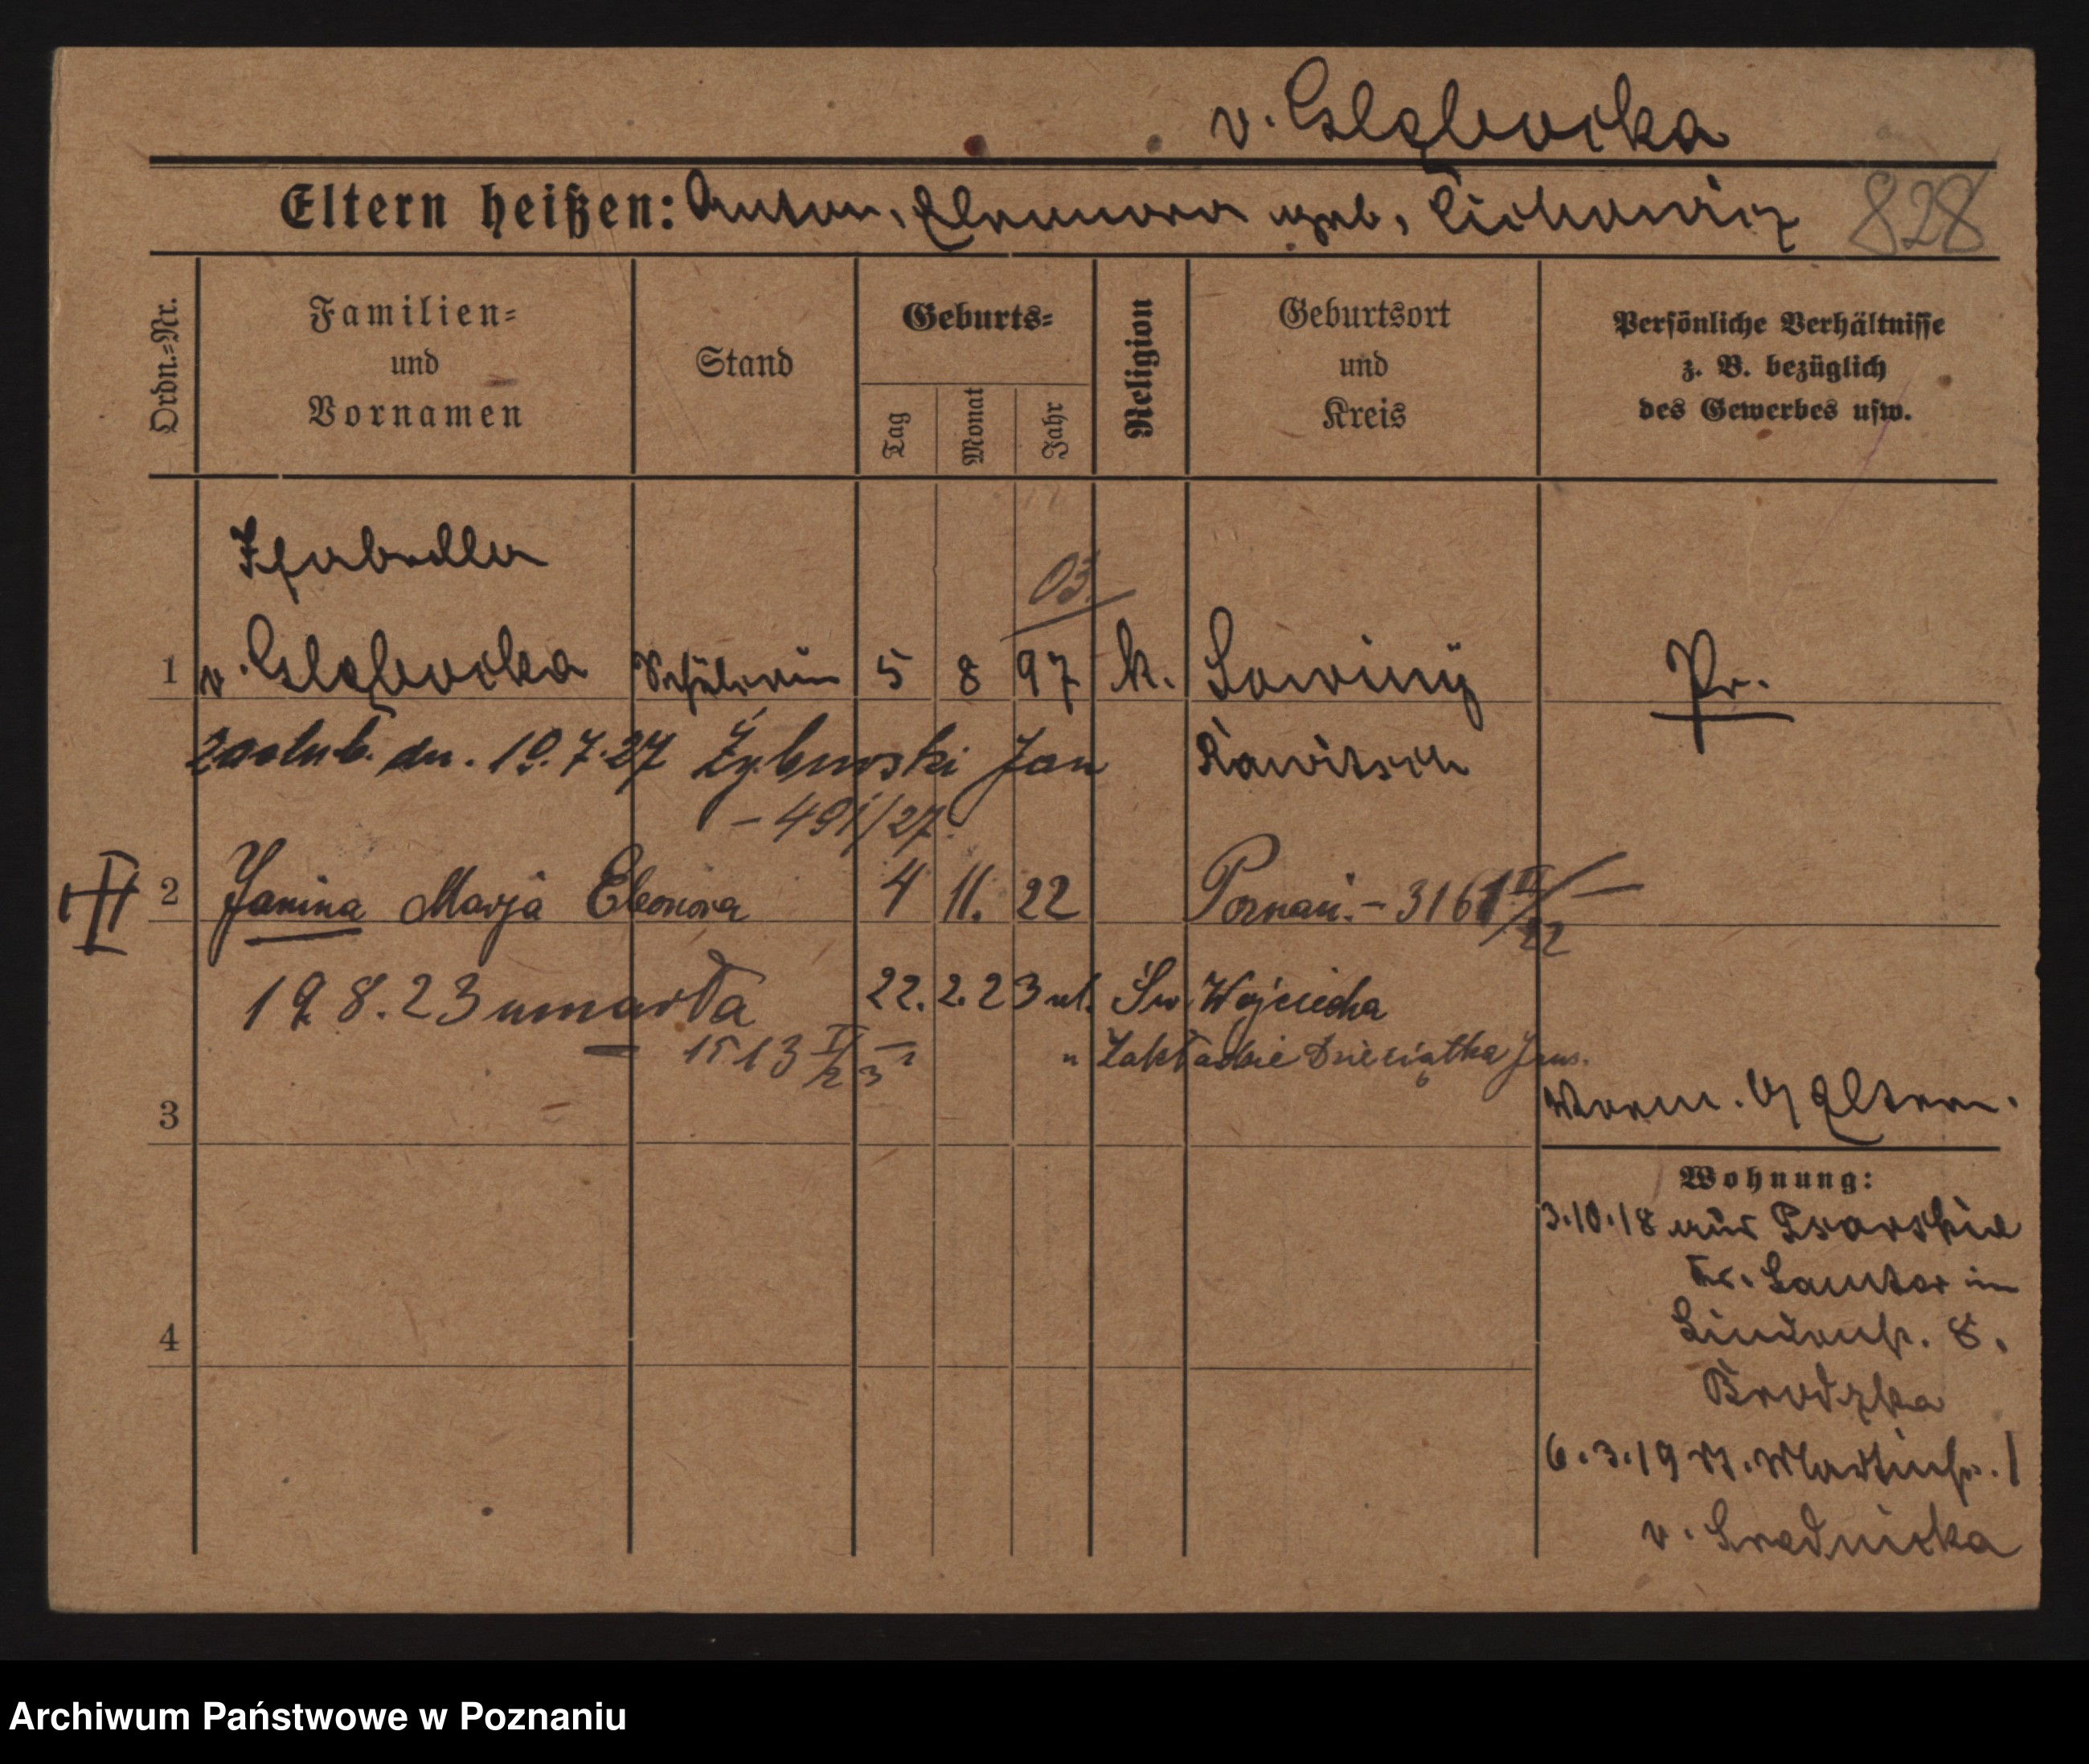 v. Głębocka
Eltern heißen: Anton, Eleonora geb. Cichowicz 828
Ordn.=Nr.
Familien=
und
Vornamen
Stand
Geburts=
Tag
Monat
Jahr
Religion
Geburtsort
und
Kreis
Persönliche Verhältnisse
z. B. bezüglich
des Gewerbes usw.
Isabella
03
1 v. Głębocka Schülerin 5 8 97 k. Sowiny Pr.
zaślub. dn. 19.7.27 Żyburski Jan Rawitsch
– 491/27
2 Janina Marja Eleonora 4 11. 22 Poznań. – 3161 II/22
19 8. 23 umarła 22. 2. 23 ul. Św. Wojciecha
– 1513 II/23 – " Zakładzie Dzieciątka Jezus.
3 Eltern.
Wohnung:
3.10.18
Lindenstr. 8.
Brodzka
4
6.3.19 St. Martinstr. 1
v. Srednicka
Archiwum Państwowe w Poznaniu